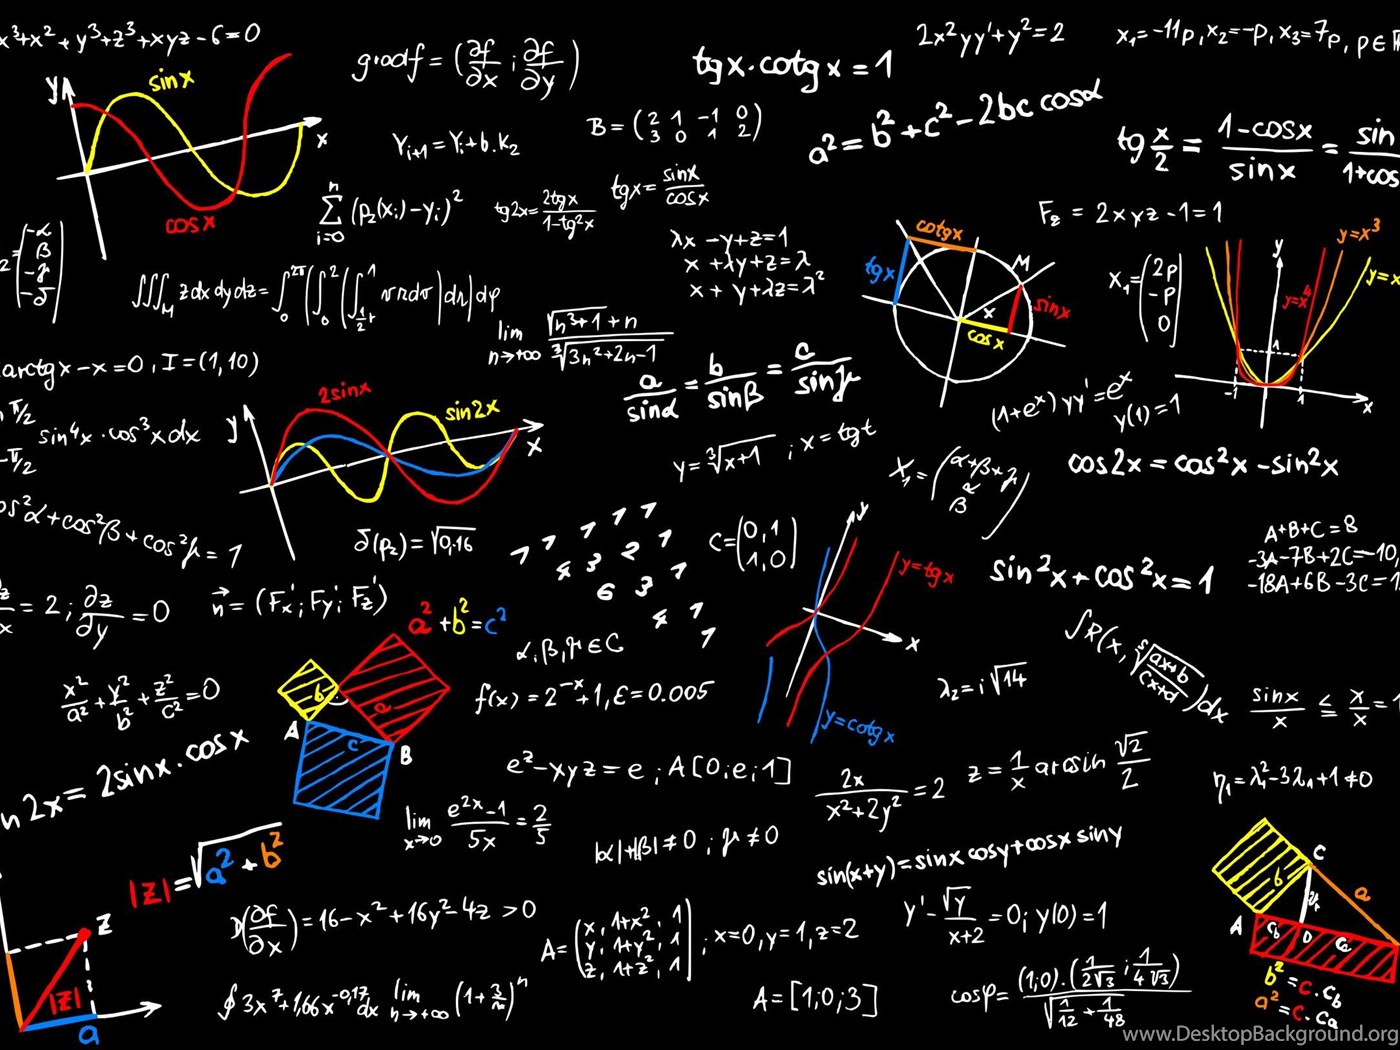 x³+x²+y³+z³+xyz-6=0
gradf = (∂f/∂x ; ∂f/∂y)
tgx·cotgx=1
2x²yy'+y²=2
x₁=-11p, x₂=-p, x₃=7p, p∈
y
sinx
x
cosx
Yᵢ₊₁=Yᵢ+b·k₂
B=(2 1 -1 0
3 0 1 2)
a²=b²+c²-2bc cosα
tg x/2 = 1-cosx/sinx = sin/1+cos
∑ i=0 n (p₂(xᵢ)-yᵢ)²
tg2x= 2tgx/1-tg²x
tgx= sinx/cosx
F_z = 2xyz-1=1
2=(-α
β
-γ
-δ)
∭_M zdxdydz=∫₀^2π(∫₀^2(∫_½r^1 vrdv)dr)dφ
λx-y+z=1
x+λy+z=λ
x+y+λz=λ²
cotgx
tgx
M
sinx
x
cosx
X₁=(2p
-p
0)
y
y=x³
y=x⁴
y=x
1
-1
1
x
lim n→+∞ √(n³+1)+n / ∛(3n²+2n-1)
arctgx-x=0, I=(1,10)
a/sinα = b/sinβ = c/sinγ
(1+eˣ)yy'=eˣ
y(1)=1
π/2
-π/2
sin⁴x·cos³xdx
2sinx
sin2x
y
x
y=∛(x+1) ; x=tgt
X₁=(α+β+γ
α
β)
cos2x=cos²x-sin²x
os²α+cos²β+cos²γ=1
δ(p₂)=√0,16
1 1 1 1 1
4 3 2 1
6 3 1
4 1
1
C=(0,1
1,0)
y
y=tgx
x
y=cotgx
sin²x+cos²x=1
A+B+C=8
-3A-7B+2C=-10,
-18A+6B-3C=1
=2; ∂z/∂y=0
n⃗=(Fx'; Fy'; Fz')
a²+b²=c²
b
a
c
A
B
α,β,γ∈C
∫R(x, ⁵√(ax+b/cx+d))dx
x²/a²+y²/b²+z²/c²=0
f(x)=2⁻ˣ+1, ε=0.005
λ₂=i√14
sinx/x ≤ x/x =
n2x=2sinx·cosx
e^z-xyz=e; A[0;e;1]
2x/x²+2y²=2
z=1/x arcsin √2/2
η₁=λ₁²-3λ₁+1≠0
lim x→0 e^2x-1/5x = 2/5
|α|+|β|≠0 ; γ≠0
sin(x+y)=sinxcosy+cosxsiny
|z|=√(a²+b²)
z
|z|
a
(∂f/∂x)=16-x²+16y²-4z>0
A=(x, 1+x², 1
y, 1+y², 1
z, 1+z², 1) ; x=0, y=1, z=2
y'-√y/x+2=0; y(0)=1
b
C
a
A
c_b
D
c_a
b²=c·c_b
a²=c·c_a
∮3x⁷+1,66x^-0,17dx lim n→+∞ (1+3/n)ⁿ
A=[1;0;3]
cosφ= (1;0)·(1/2√3 ; 1/4√3) / √(1/12+1/48)
www.DesktopBackground.org